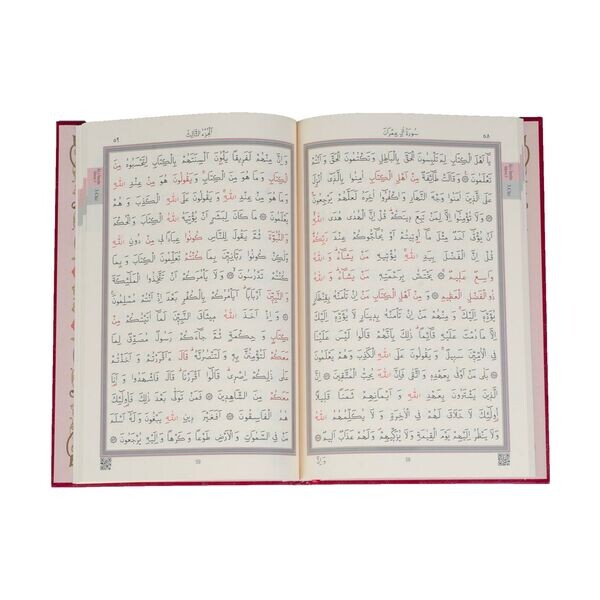 سُورَةُ اٰلِ عِمْرَانَ
٥٨
يَا اَهْلَ الْكِتَابِ لِمَ تَلْبِسُونَ الْحَقَّ بِالْبَاطِلِ وَتَكْتُمُونَ الْحَقَّ وَاَنْتُمْ
تَعْلَمُونَ وَقَالَتْ طَائِفَةٌ مِنْ اَهْلِ الْكِتَابِ اٰمِنُوا بِالَّذِي اُنْزِلَ
عَلَى الَّذِينَ اٰمَنُوا وَجْهَ النَّهَارِ وَاكْفُرُوا اٰخِرَهُ لَعَلَّهُمْ يَرْجِعُونَ
وَلَا تُؤْمِنُوا اِلَّا لِمَنْ تَبِعَ دِينَكُمْ قُلْ اِنَّ الْهُدٰى هُدَى اللّٰهِ
اَنْ يُؤْتٰى اَحَدٌ مِثْلَ مَا اُوتِيتُمْ اَوْ يُحَاجُّوكُمْ عِنْدَ رَبِّكُمْ
قُلْ اِنَّ الْفَضْلَ بِيَدِ اللّٰهِ يُؤْتِيهِ مَنْ يَشَاءُ وَاللّٰهُ
وَاسِعٌ عَلِيمٌ يَخْتَصُّ بِرَحْمَتِهِ مَنْ يَشَاءُ وَاللّٰهُ
ذُو الْفَضْلِ الْعَظِيمِ وَمِنْ اَهْلِ الْكِتَابِ مَنْ اِنْ تَأْمَنْهُ بِقِنْطَارٍ
يُؤَدِّهِ اِلَيْكَ وَمِنْهُمْ مَنْ اِنْ تَأْمَنْهُ بِدِينَارٍ لَا يُؤَدِّهِ اِلَيْكَ
اِلَّا مَا دُمْتَ عَلَيْهِ قَائِمًا ذٰلِكَ بِاَنَّهُمْ قَالُوا لَيْسَ عَلَيْنَا
فِي الْاُمِّيِّينَ سَبِيلٌ وَيَقُولُونَ عَلَى اللّٰهِ الْكَذِبَ وَهُمْ يَعْلَمُونَ
بَلٰى مَنْ اَوْفٰى بِعَهْدِهِ وَاتَّقٰى فَاِنَّ اللّٰهَ يُحِبُّ الْمُتَّقِينَ اِنَّ
الَّذِينَ يَشْتَرُونَ بِعَهْدِ اللّٰهِ وَاَيْمَانِهِمْ ثَمَنًا قَلِيلًا اُولٰئِكَ
لَا خَلَاقَ لَهُمْ فِي الْاٰخِرَةِ وَلَا يُكَلِّمُهُمُ اللّٰهُ
وَلَا يَنْظُرُ اِلَيْهِمْ يَوْمَ الْقِيٰمَةِ وَلَا يُزَكِّيهِمْ وَلَهُمْ عَذَابٌ اَلِيمٌ
وَاِنَّ
اَلْجُزْءُ الثَّالِثُ
٥٩
وَاِنَّ مِنْهُمْ لَفَرِيقًا يَلْوُنَ اَلْسِنَتَهُمْ بِالْكِتَابِ لِتَحْسَبُوهُ مِنَ
الْكِتَابِ وَمَا هُوَ مِنَ الْكِتَابِ وَيَقُولُونَ هُوَ مِنْ عِنْدِ اللّٰهِ
وَمَا هُوَ مِنْ عِنْدِ اللّٰهِ وَيَقُولُونَ عَلَى اللّٰهِ الْكَذِبَ وَهُمْ
يَعْلَمُونَ مَا كَانَ لِبَشَرٍ اَنْ يُؤْتِيَهُ اللّٰهُ الْكِتَابَ وَالْحُكْمَ
وَالنُّبُوَّةَ ثُمَّ يَقُولَ لِلنَّاسِ كُونُوا عِبَادًا لِي مِنْ دُونِ اللّٰهِ
وَلٰكِنْ كُونُوا رَبَّانِيِّينَ بِمَا كُنْتُمْ تُعَلِّمُونَ الْكِتَابَ وَبِمَا
كُنْتُمْ تَدْرُسُونَ وَلَا يَأْمُرَكُمْ اَنْ تَتَّخِذُوا الْمَلٰئِكَةَ
وَالنَّبِيِّينَ اَرْبَابًا اَيَأْمُرُكُمْ بِالْكُفْرِ بَعْدَ اِذْ اَنْتُمْ مُسْلِمُونَ
وَاِذْ اَخَذَ اللّٰهُ مِيثَاقَ النَّبِيِّينَ لَمَا اٰتَيْتُكُمْ مِنْ
كِتَابٍ وَحِكْمَةٍ ثُمَّ جَاءَكُمْ رَسُولٌ مُصَدِّقٌ لِمَا
مَعَكُمْ لَتُؤْمِنُنَّ بِهِ وَلَتَنْصُرُنَّهُ قَالَ ءَاَقْرَرْتُمْ وَاَخَذْتُمْ
عَلٰى ذٰلِكُمْ اِصْرِي قَالُوا اَقْرَرْنَا قَالَ فَاشْهَدُوا وَاَنَا
مَعَكُمْ مِنَ الشَّاهِدِينَ فَمَنْ تَوَلّٰى بَعْدَ ذٰلِكَ فَاُولٰئِكَ
هُمُ الْفَاسِقُونَ اَفَغَيْرَ دِينِ اللّٰهِ يَبْغُونَ وَلَهُ اَسْلَمَ
مَنْ فِي السَّمٰوَاتِ وَالْاَرْضِ طَوْعًا وَكَرْهًا وَاِلَيْهِ يُرْجَعُونَ